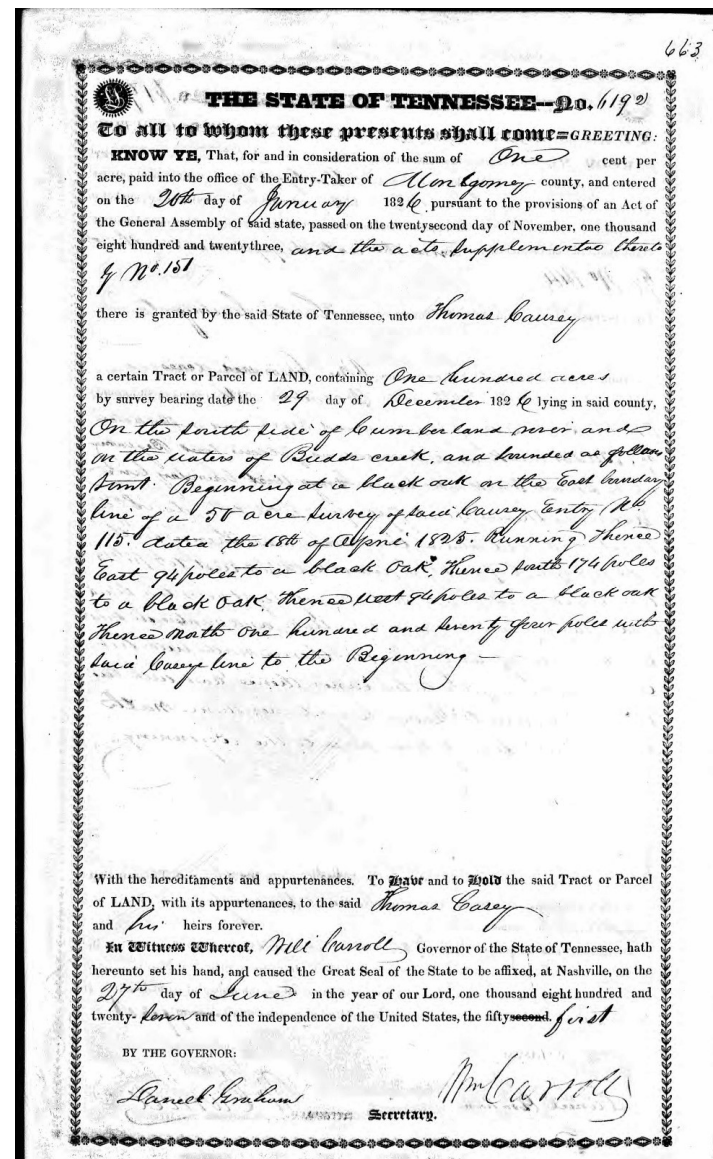 663
THE STATE OF TENNESSEE--No. 6192
To all to whom these presents shall come=GREETING:
KNOW YE, That, for and in consideration of the sum of One cent per
acre, paid into the office of the Entry-Taker of Montgomey county, and entered
on the 20th day of January 1826 pursuant to the provisions of an Act of
the General Assembly of said state, passed on the twentysecond day of November, one thousand
eight hundred and twentythree, and the acts supplemental thereto
by No. 151
there is granted by the said State of Tennessee, unto Thomas Causey
a certain Tract or Parcel of LAND, containing One hundred acres
by survey bearing date the 29 day of December 1826 lying in said county,
On the south side of Cumberland river and
on the waters of Budds creek, and bounded as follows
towit. Beginning at a black oak on the East boundary
line of a 50 acre survey of said Causey Entry No
115. dated the 18th of April 1825. Running Thence
East 94 poles to a black oak, Thence south 174 poles
to a black oak, Thence west 94 poles to a black oak
Thence north one hundred and seventy four poles with
said Caseys line to the Beginning
With the hereditaments and appurtenances. To Have and to Hold the said Tract or Parcel
of LAND, with its appurtenances, to the said Thomas Casey
and his heirs forever.
In Witness Whereof, Will Carroll Governor of the State of Tennessee, hath
hereunto set his hand, and caused the Great Seal of the State to be affixed, at Nashville, on the
27th day of June in the year of our Lord, one thousand eight hundred and
twenty-seven and of the independence of the United States, the fiftysecond. first
BY THE GOVERNOR:
Wm Carroll
Daniel Graham
Secretary.